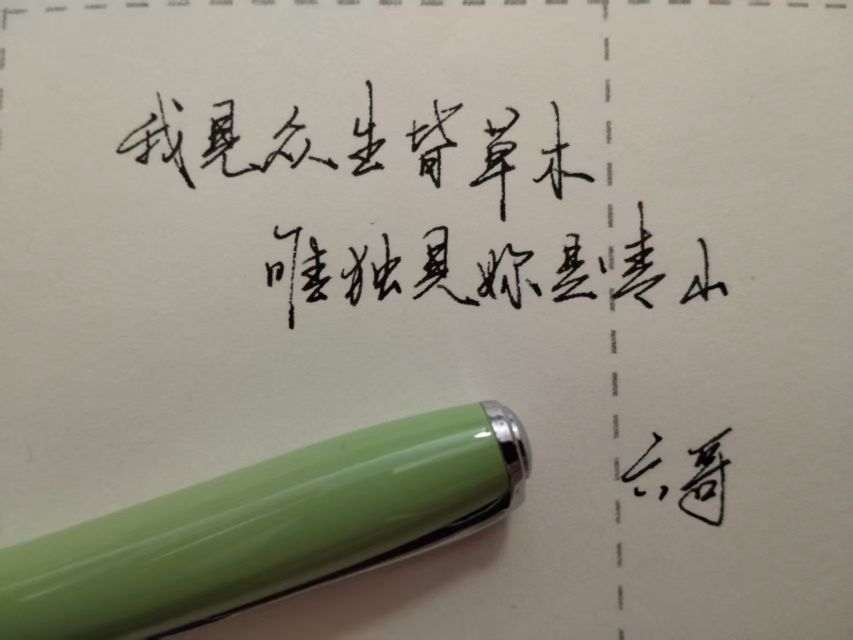 我見众生皆草木
唯独見妳是青山
六哥